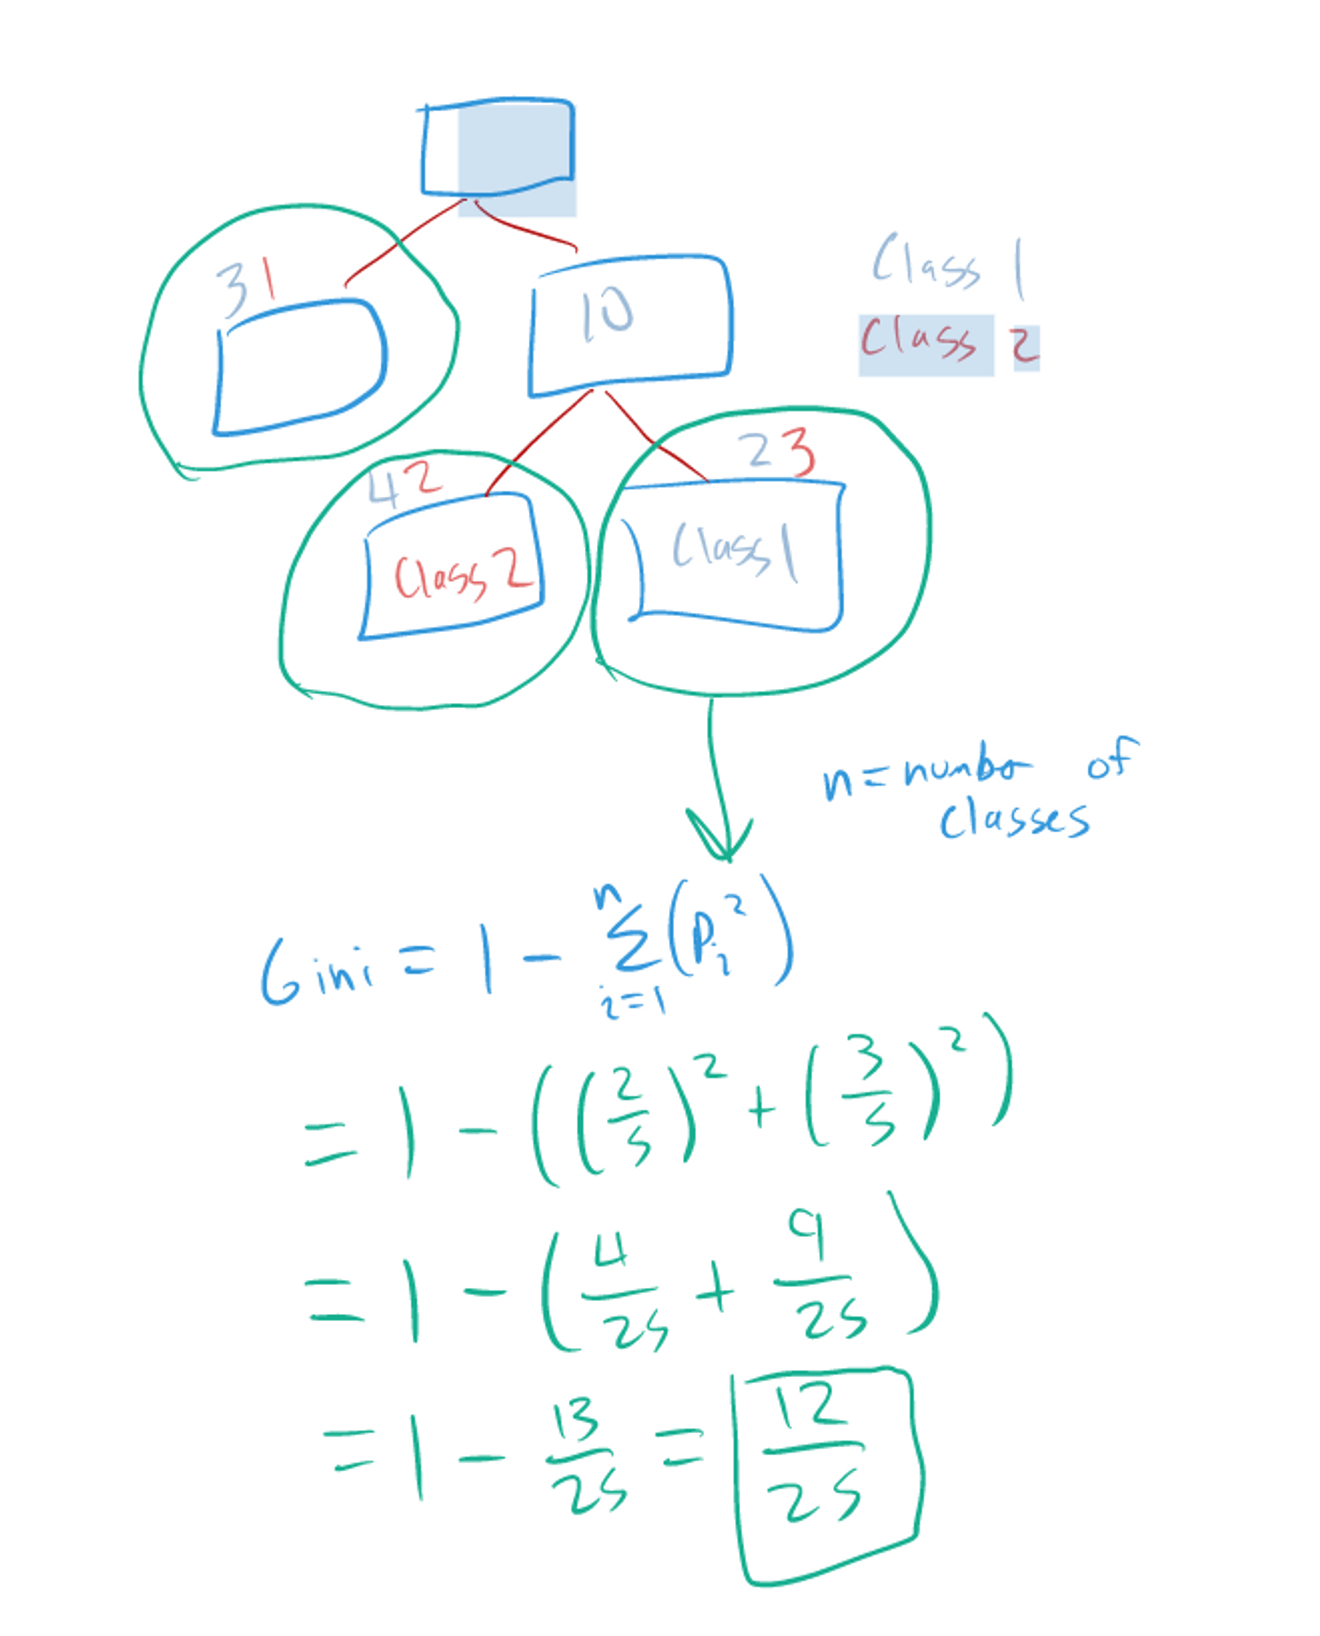 3 1
Class 1
10
Class 2
4 2
2 3
Class 2
Class 1
n = number of
classes
Gini = 1 - n∑i=1 (pi²)
= 1 - ((2/5)² + (3/5)²)
= 1 - (4/25 + 9/25)
= 1 - 13/25 = 12/25